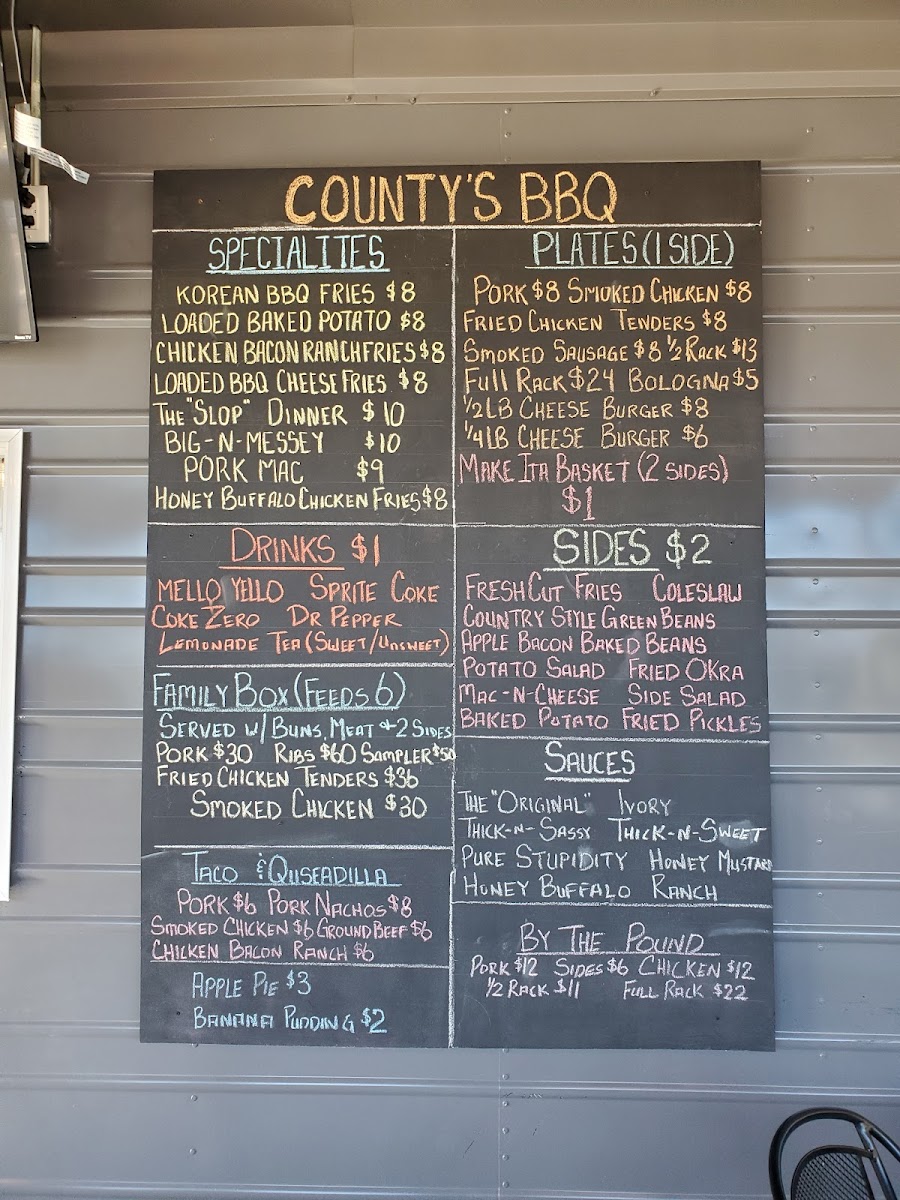 COUNTY'S BBQ
SPECIALITES
KOREAN BBQ FRIES $8
LOADED BAKED POTATO $8
CHICKEN BACON RANCH FRIES $8
LOADED BBQ CHEESE FRIES $8
THE "SLOP" DINNER $10
BIG-N-MESSEY $10
PORK MAC $9
HONEY BUFFALO CHICKEN FRIES $8
DRINKS $1
MELLO YELLO SPRITE COKE
COKE ZERO DR PEPPER
LEMONADE TEA (SWEET/UNSWEET)
FAMILY BOX (FEEDS 6)
SERVED W/ BUNS, MEAT + 2 SIDES
PORK $30 RIBS $60 SAMPLER $50
FRIED CHICKEN TENDERS $36
SMOKED CHICKEN $30
TACO & QUSEADILLA
PORK $6 PORK NACHOS $8
SMOKED CHICKEN $6 GROUND BEEF $6
CHICKEN BACON RANCH $6
APPLE PIE $3
BANANA PUDDING $2
PLATES (1 SIDE)
PORK $8 SMOKED CHICKEN $8
FRIED CHICKEN TENDERS $8
SMOKED SAUSAGE $8 1/2 RACK $13
FULL RACK $24 BOLOGNA $5
1/2 LB CHEESE BURGER $8
1/4 LB CHEESE BURGER $6
MAKE IT A BASKET (2 SIDES)
$1
SIDES $2
FRESH CUT FRIES COLESLAW
COUNTRY STYLE GREEN BEANS
APPLE BACON BAKED BEANS
POTATO SALAD FRIED OKRA
MAC-N-CHEESE SIDE SALAD
BAKED POTATO FRIED PICKLES
SAUCES
THE "ORIGINAL" IVORY
THICK-N-SASSY THICK-N-SWEET
PURE STUPIDITY HONEY MUSTARD
HONEY BUFFALO RANCH
BY THE POUND
PORK $12 SIDES $6 CHICKEN $12
1/2 RACK $11 FULL RACK $22